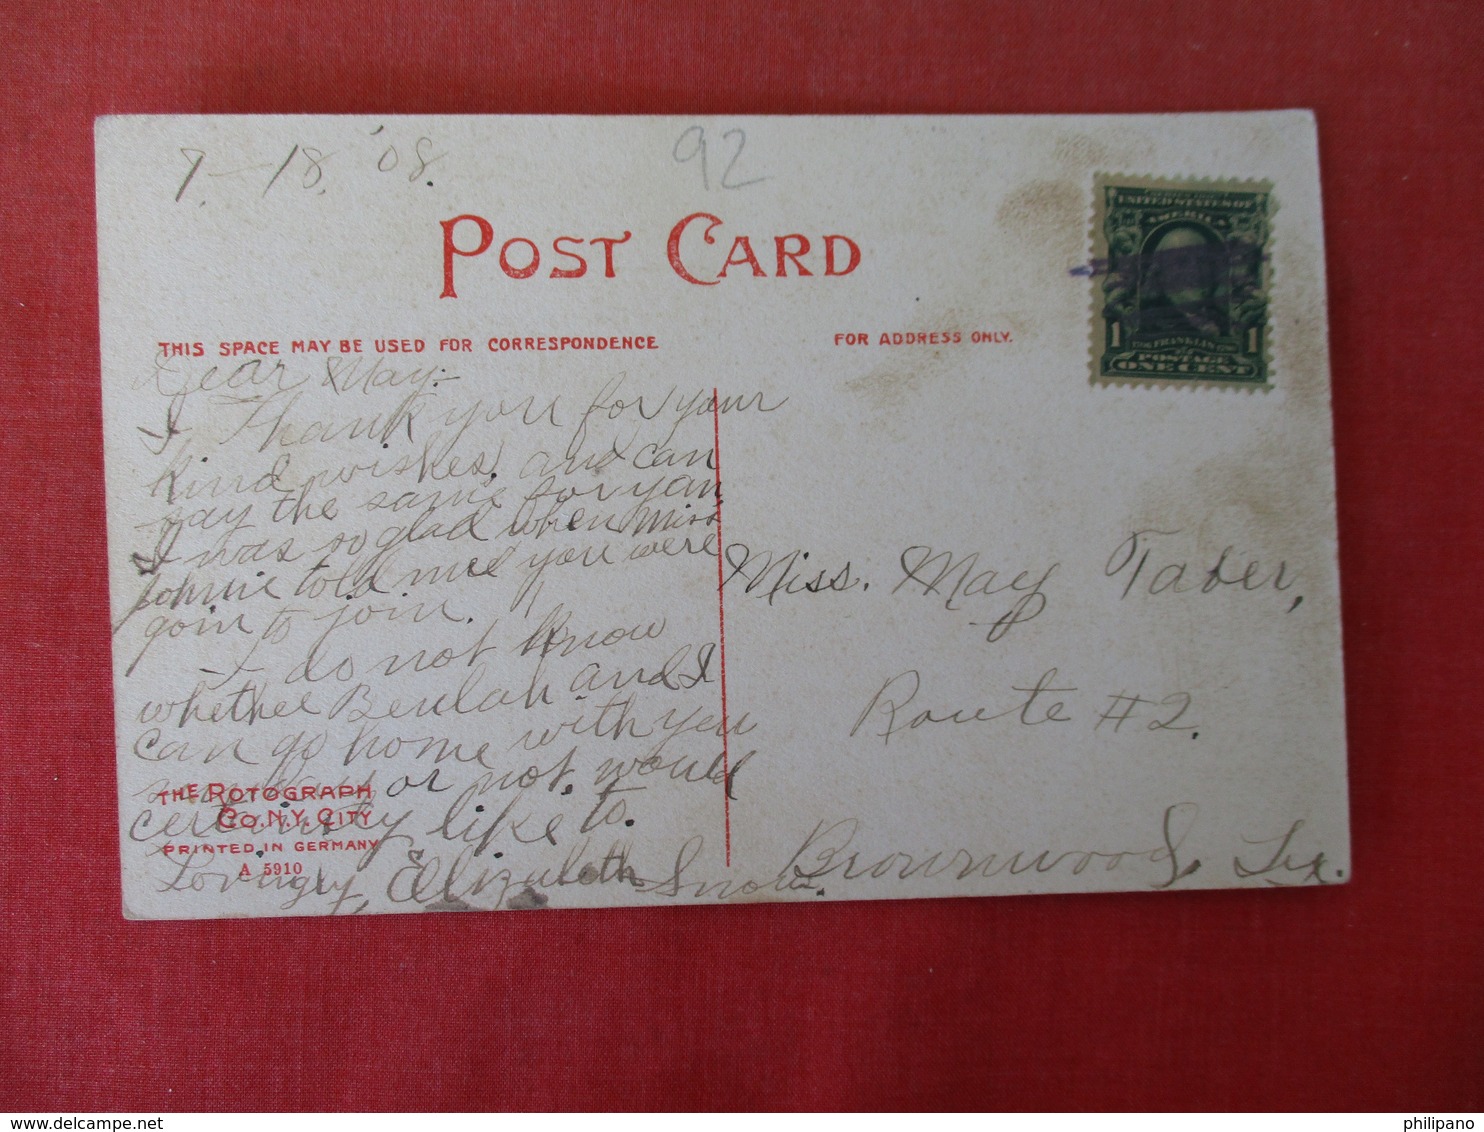 7-18, '08.
92
POST CARD
THIS SPACE MAY BE USED FOR CORRESPONDENCE
FOR ADDRESS ONLY.
UNITED STATES OF
AMERICA
FRANKLIN
1 POSTAGE 1
ONE CENT
Dear May:-
I Thank you for your
kind wishes, and can
say the same for you
I was so glad when Miss
Johnie told me you were
goin to join.
I do not know
whether Beulah and I
can go home with you
or not, would
certainly like to.
Lovingly, Elizabeth Snow.
THE ROTOGRAPH
CO. N.Y. CITY
PRINTED IN GERMANY
A 5910
Miss. May Taber,
Route #2.
Brownwood, Tex.
delcampe.net
philipano